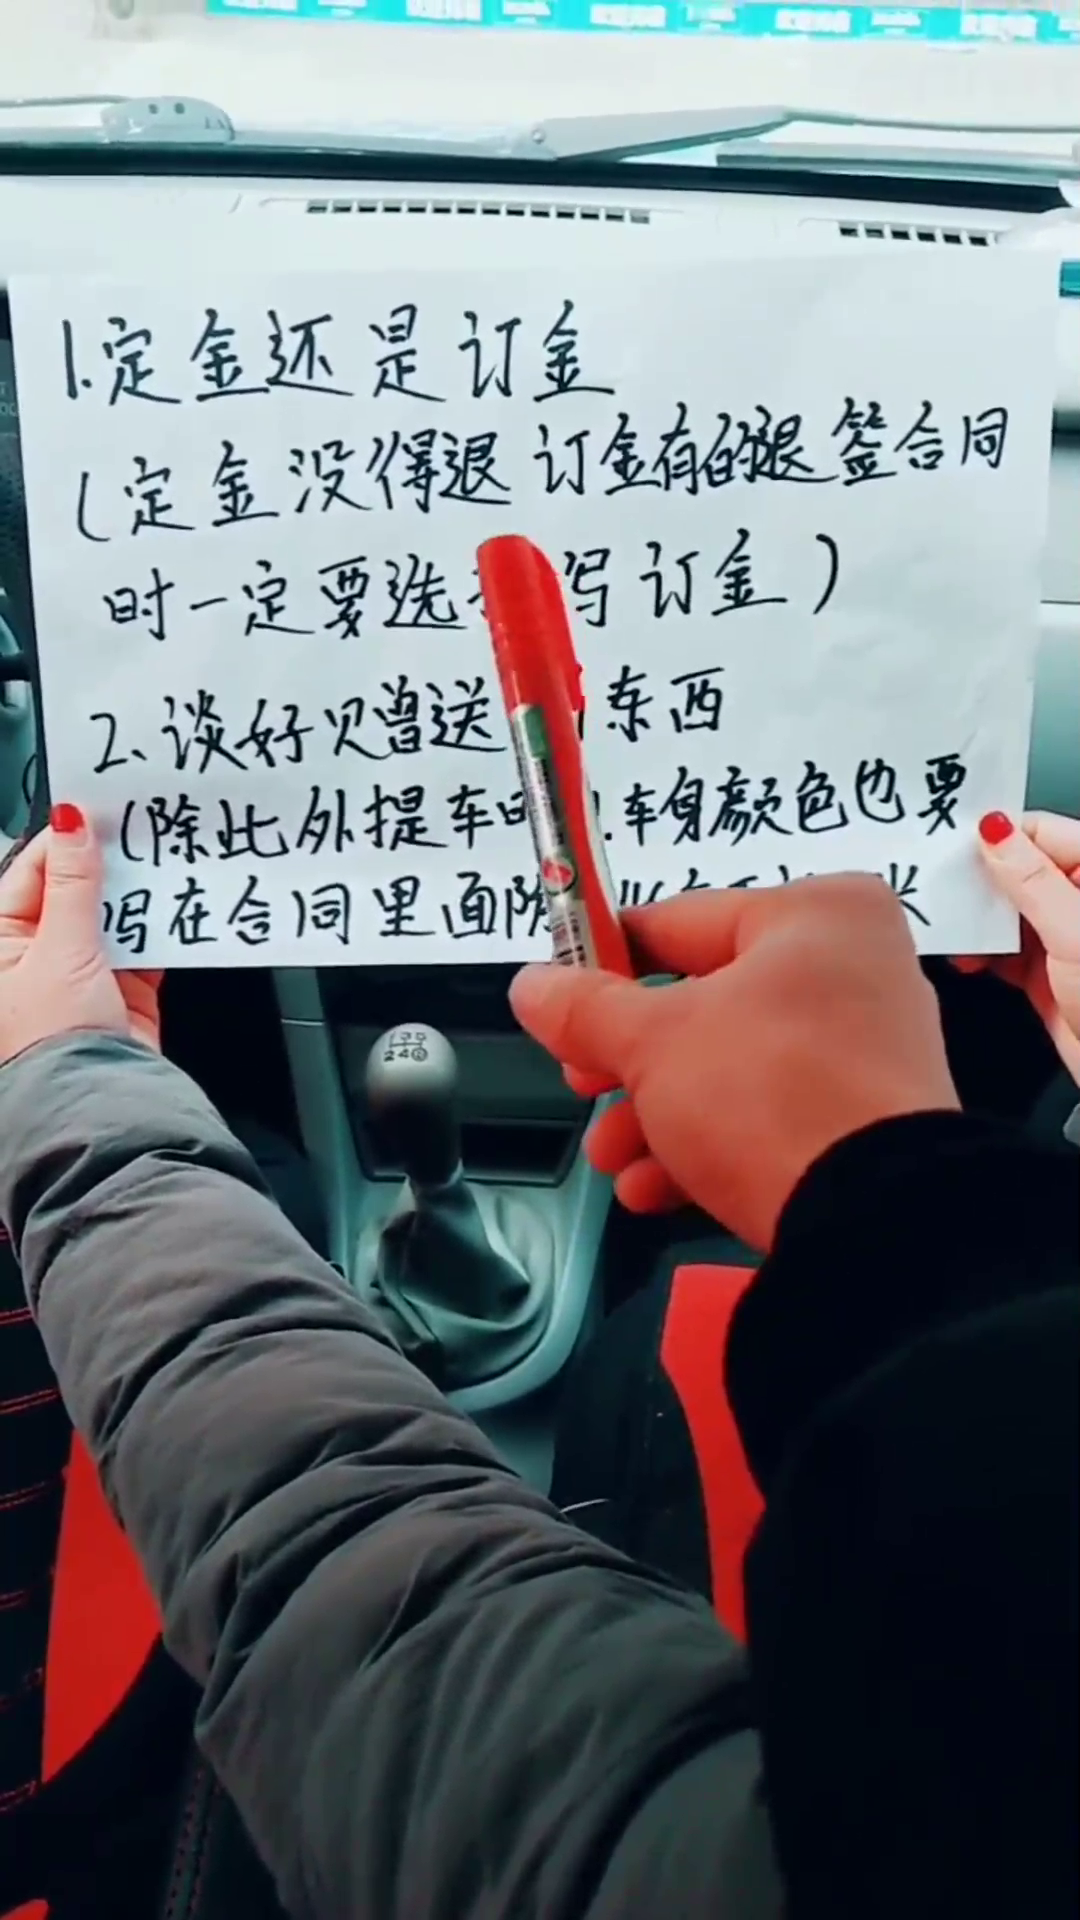 1.定金还是订金
(定金没得退 订金有的退 签合同
时一定要选 写订金)
2、谈好赠送 东西
(除此外提车时 车身颜色也要
写在合同里面防